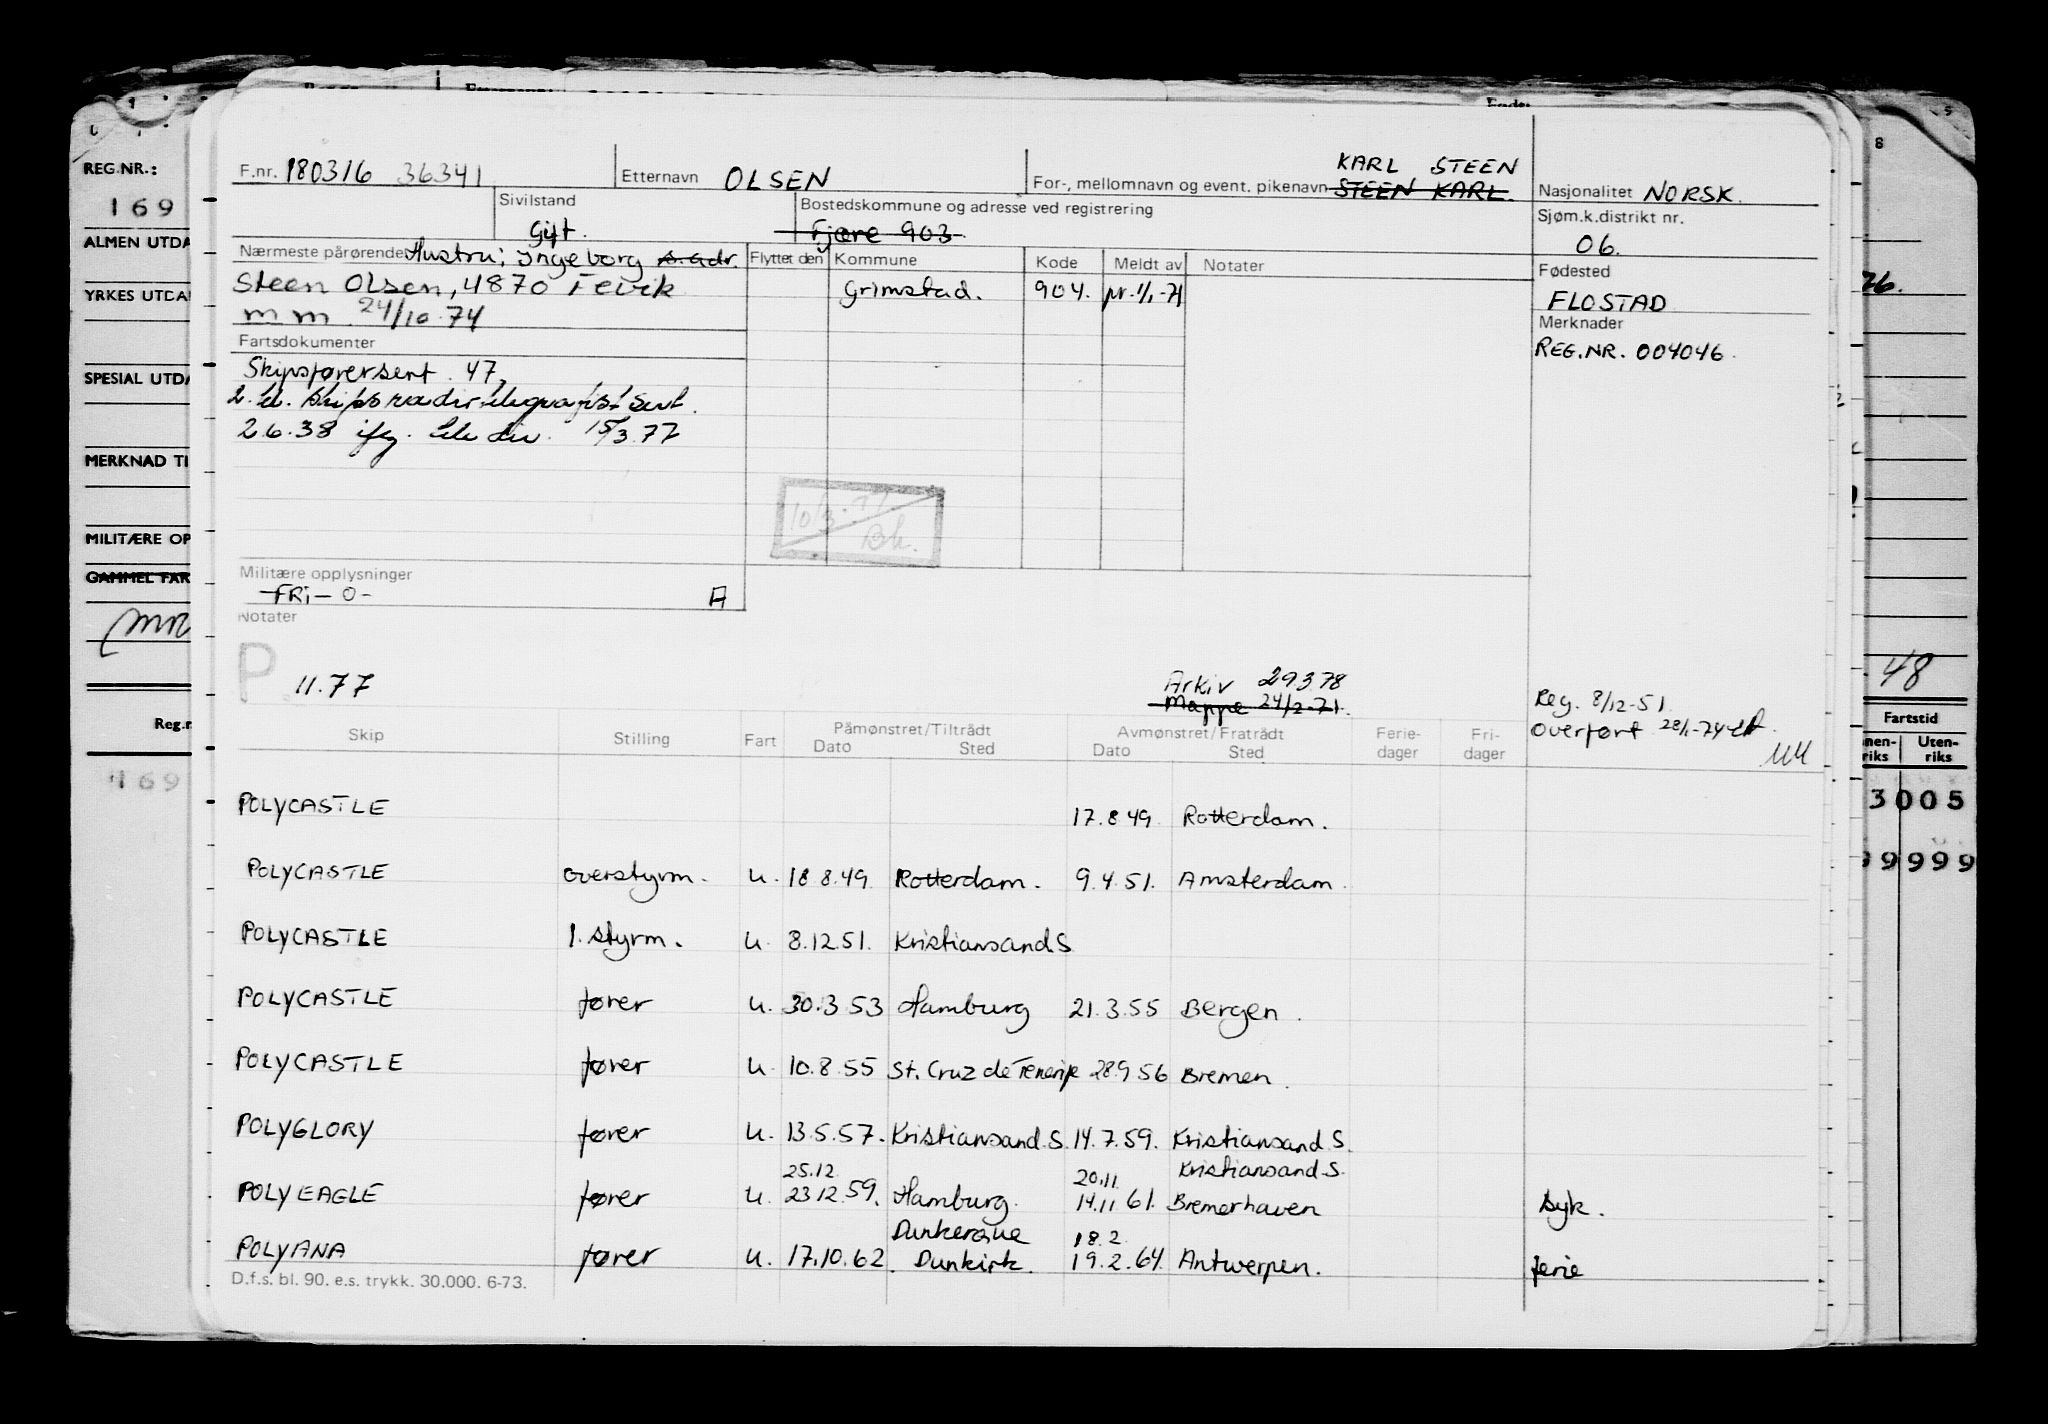 REG.NR.:
169
ALMEN UTDA
YRKES UTDA
SPESIAL UTDA
MERKNAD TI
MILITÆRE OP
GAMMEL FAR
Reg.n
469
F.nr. 180316 36341
Etternavn OLSEN
KARL STEEN
For-, mellomnavn og event. pikenavn STEEN KARL.
Nasjonalitet NORSK.
Sivilstand
Gift.
Bostedskommune og adresse ved registrering
Fjære 903
Sjøm.k.distrikt nr.
06.
Nærmeste pårørende Hustru: Ingeborg s. adr.
Steen Olsen, 4870 Fevik
mm 24/10.74
Flyttet den Kommune Kode Meldt av Notater
Grimstad. 904. pr. 1/1-71
Fødested
FLOSTAD
Merknader
REG.NR. 004046.
Fartsdokumenter
Skipsførersert. 47,
2. kl. Skipsradiotelegrafist sert.
26.38 15/3.77
10/3.77
Bh.
Militære opplysninger
FRi - 0 -
A
Notater
P 11.77
Arkiv 29378
Mappe 24/2-71.
Reg. 8/12-51.
Overført 28/1-74
Skip Stilling Fart Påmønstret/Tiltrådt Avmønstret/Fratrådt Ferie- Fri-
Dato Sted Dato Sted dager dager
POLYCASTLE 17.8 49 Rotterdam.
POLYCASTLE overstyrm. u. 18 8.49 Rotterdam. 9.4.51. Amsterdam.
POLYCASTLE 1. styrm. u. 8.12.51. Kristiansand S
POLYCASTLE fører u. 30.3 53 Hamburg 21.3.55 Bergen.
POLYCASTLE fører u. 10.8.55 St. Cruz de Tenerife 28.9 56 Bremen.
POLYGLORY fører u. 13.5.57. Kristiansand.S. 14.7.59. Kristiansand S.
25.12. 20.11. Kristiansand S.
POLYEAGLE fører u. 23.12.59. Hamburg. 14.11 61. Bremerhaven syk.
Dunkerque 18.2.
POLYANA fører u. 17.10.62. Dunkirk. 19.2.64. Antwerpen. ferie
D.f.s. bl. 90. e.s. trykk. 30.000. 6-73.
8
76.
48
Fartstid
nen- Uten-
riks riks
3005
99999